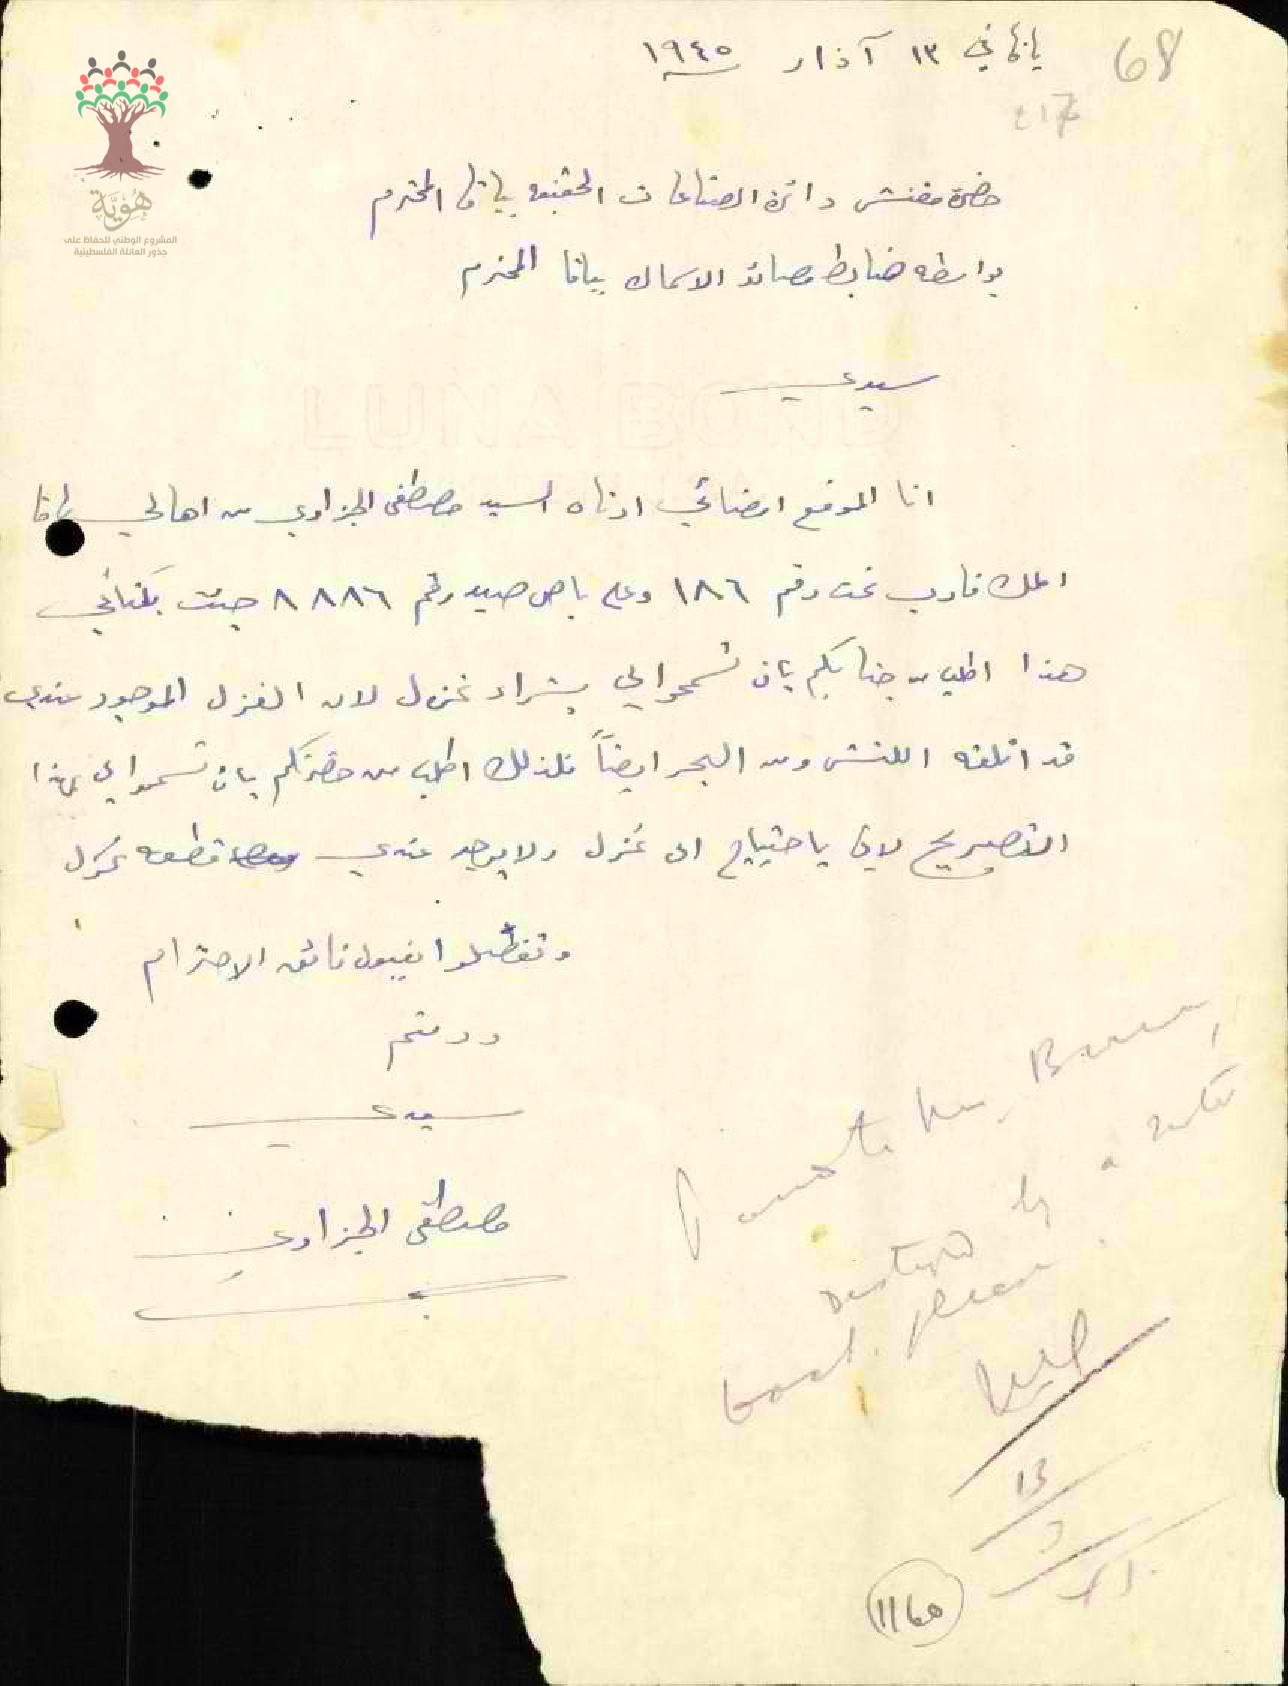 68
يافا في ١٣ آذار ١٩٤٥
217
حضرة مفتش دائرة الصناعات الخفيفه بيافا المحترم
بواسطه ضابط مصائد الاسماك بيافا المحترم
سيدي
LUNA BOND
انا الموقع امضائي ادناه السيد مصطفى الجزاوي من اهالي يافا
املك قارب تحت رقم ١٨٦ وعلى باص صيد رقم ٨٨٨٦ جئت بكتابي
هذا اطلب من جنابكم بان تسمحوا لي بشراء غزل لان الغزل الموجود عندي
قد اتلفه اللنش ومن البحر ايضاً فلذلك اطلب من حضرتكم بان تسمحوا لي بهذا
التصريح لاني باحتياج الى غزل ولا يوجد عندي قطعه غزل
وتفضلوا بقبول فائق الاحترام
ودمتم
سيدي
مصطفى الجزاوي
by a
boat. please
13
3
1160
هُوِيَّة
المشروع الوطني للحفاظ على
جذور العائلة الفلسطينية